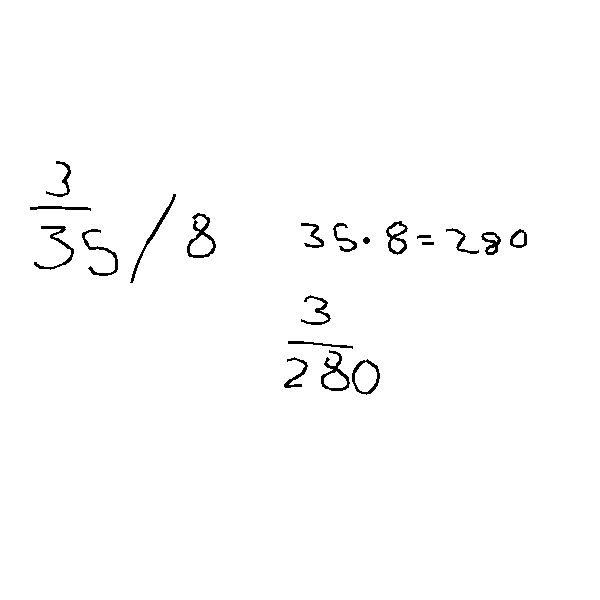 3/35 / 8
35 · 8 = 280
3/280